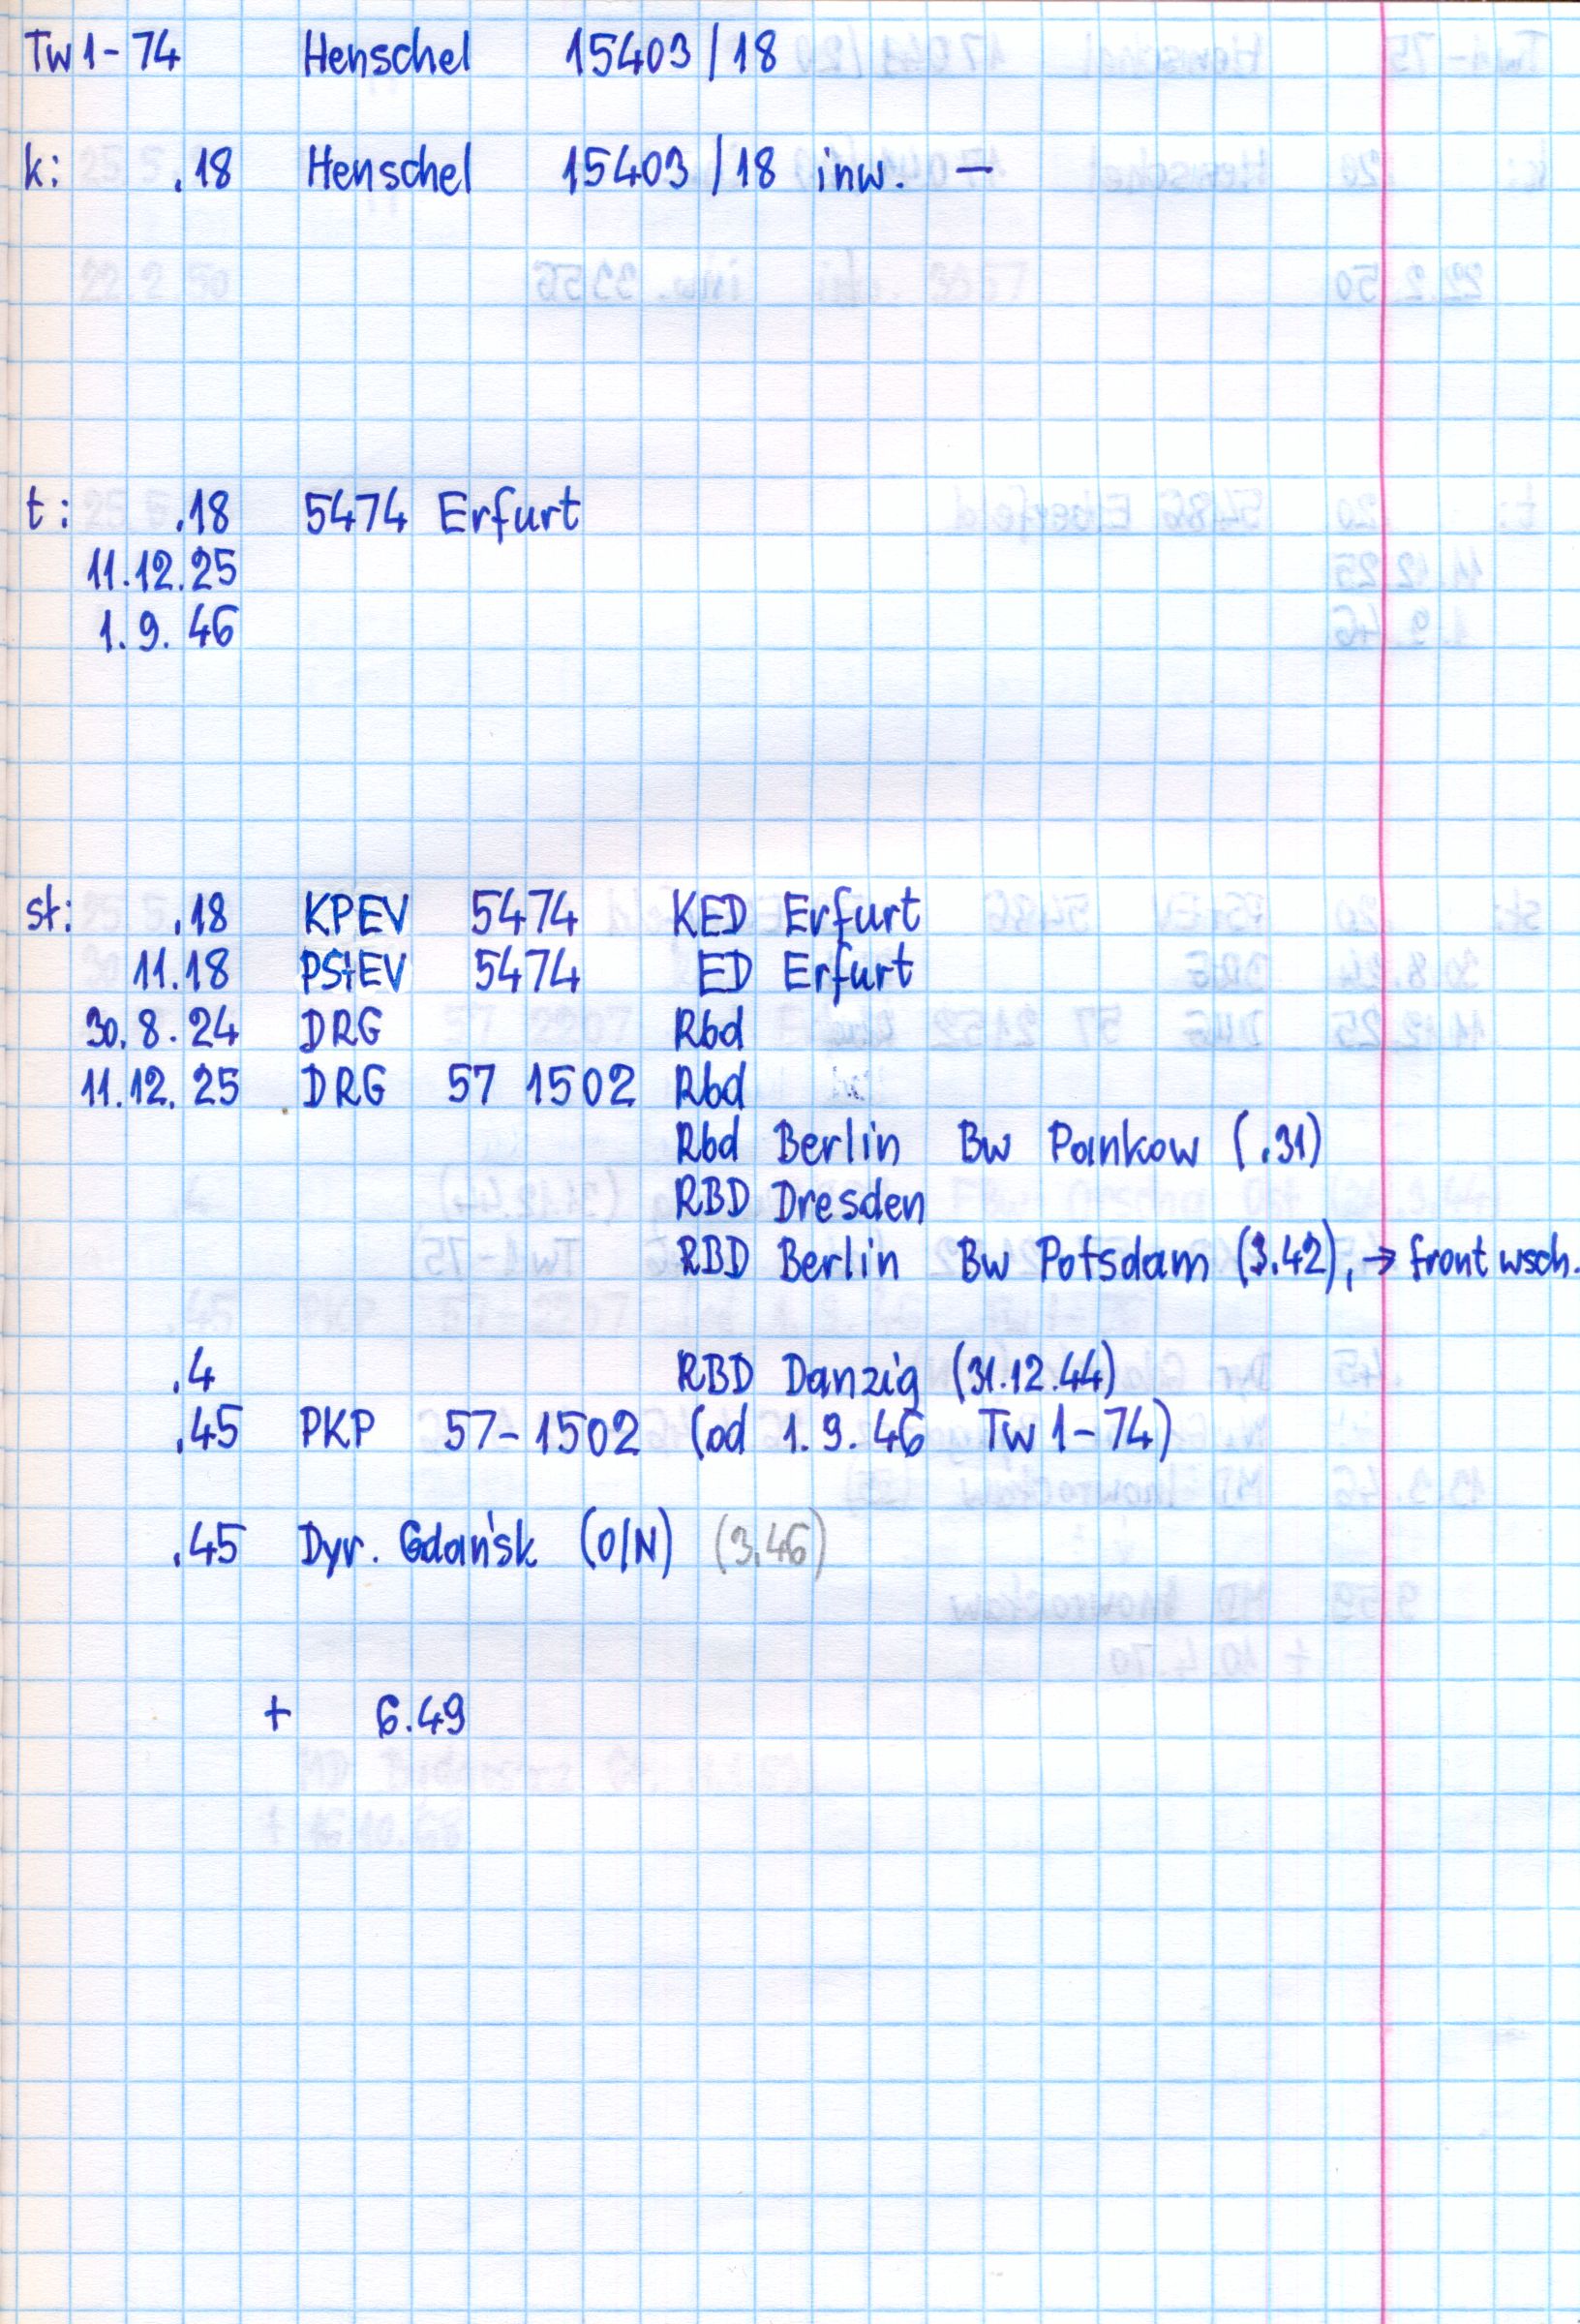 Tw1-74 Henschel 15403/18
k: .18 Henschel 15403/18 inw. —
t: .18 5474 Erfurt
11.12.25
1.9.46
st: .18 KPEV 5474 KED Erfurt
11.18 PStEV 5474 ED Erfurt
30.8.24 DRG Rbd
11.12.25 DRG 57 1502 Rbd
Rbd Berlin Bw Pankow (.31)
RBD Dresden
RBD Berlin Bw Potsdam (3.42), → front wsch.
.4 RBD Danzig (31.12.44)
.45 PKP 57-1502 (od 1.9.46 Tw1-74)
.45 Dyr. Gdańsk (O/N) (3.46)
+ 6.49